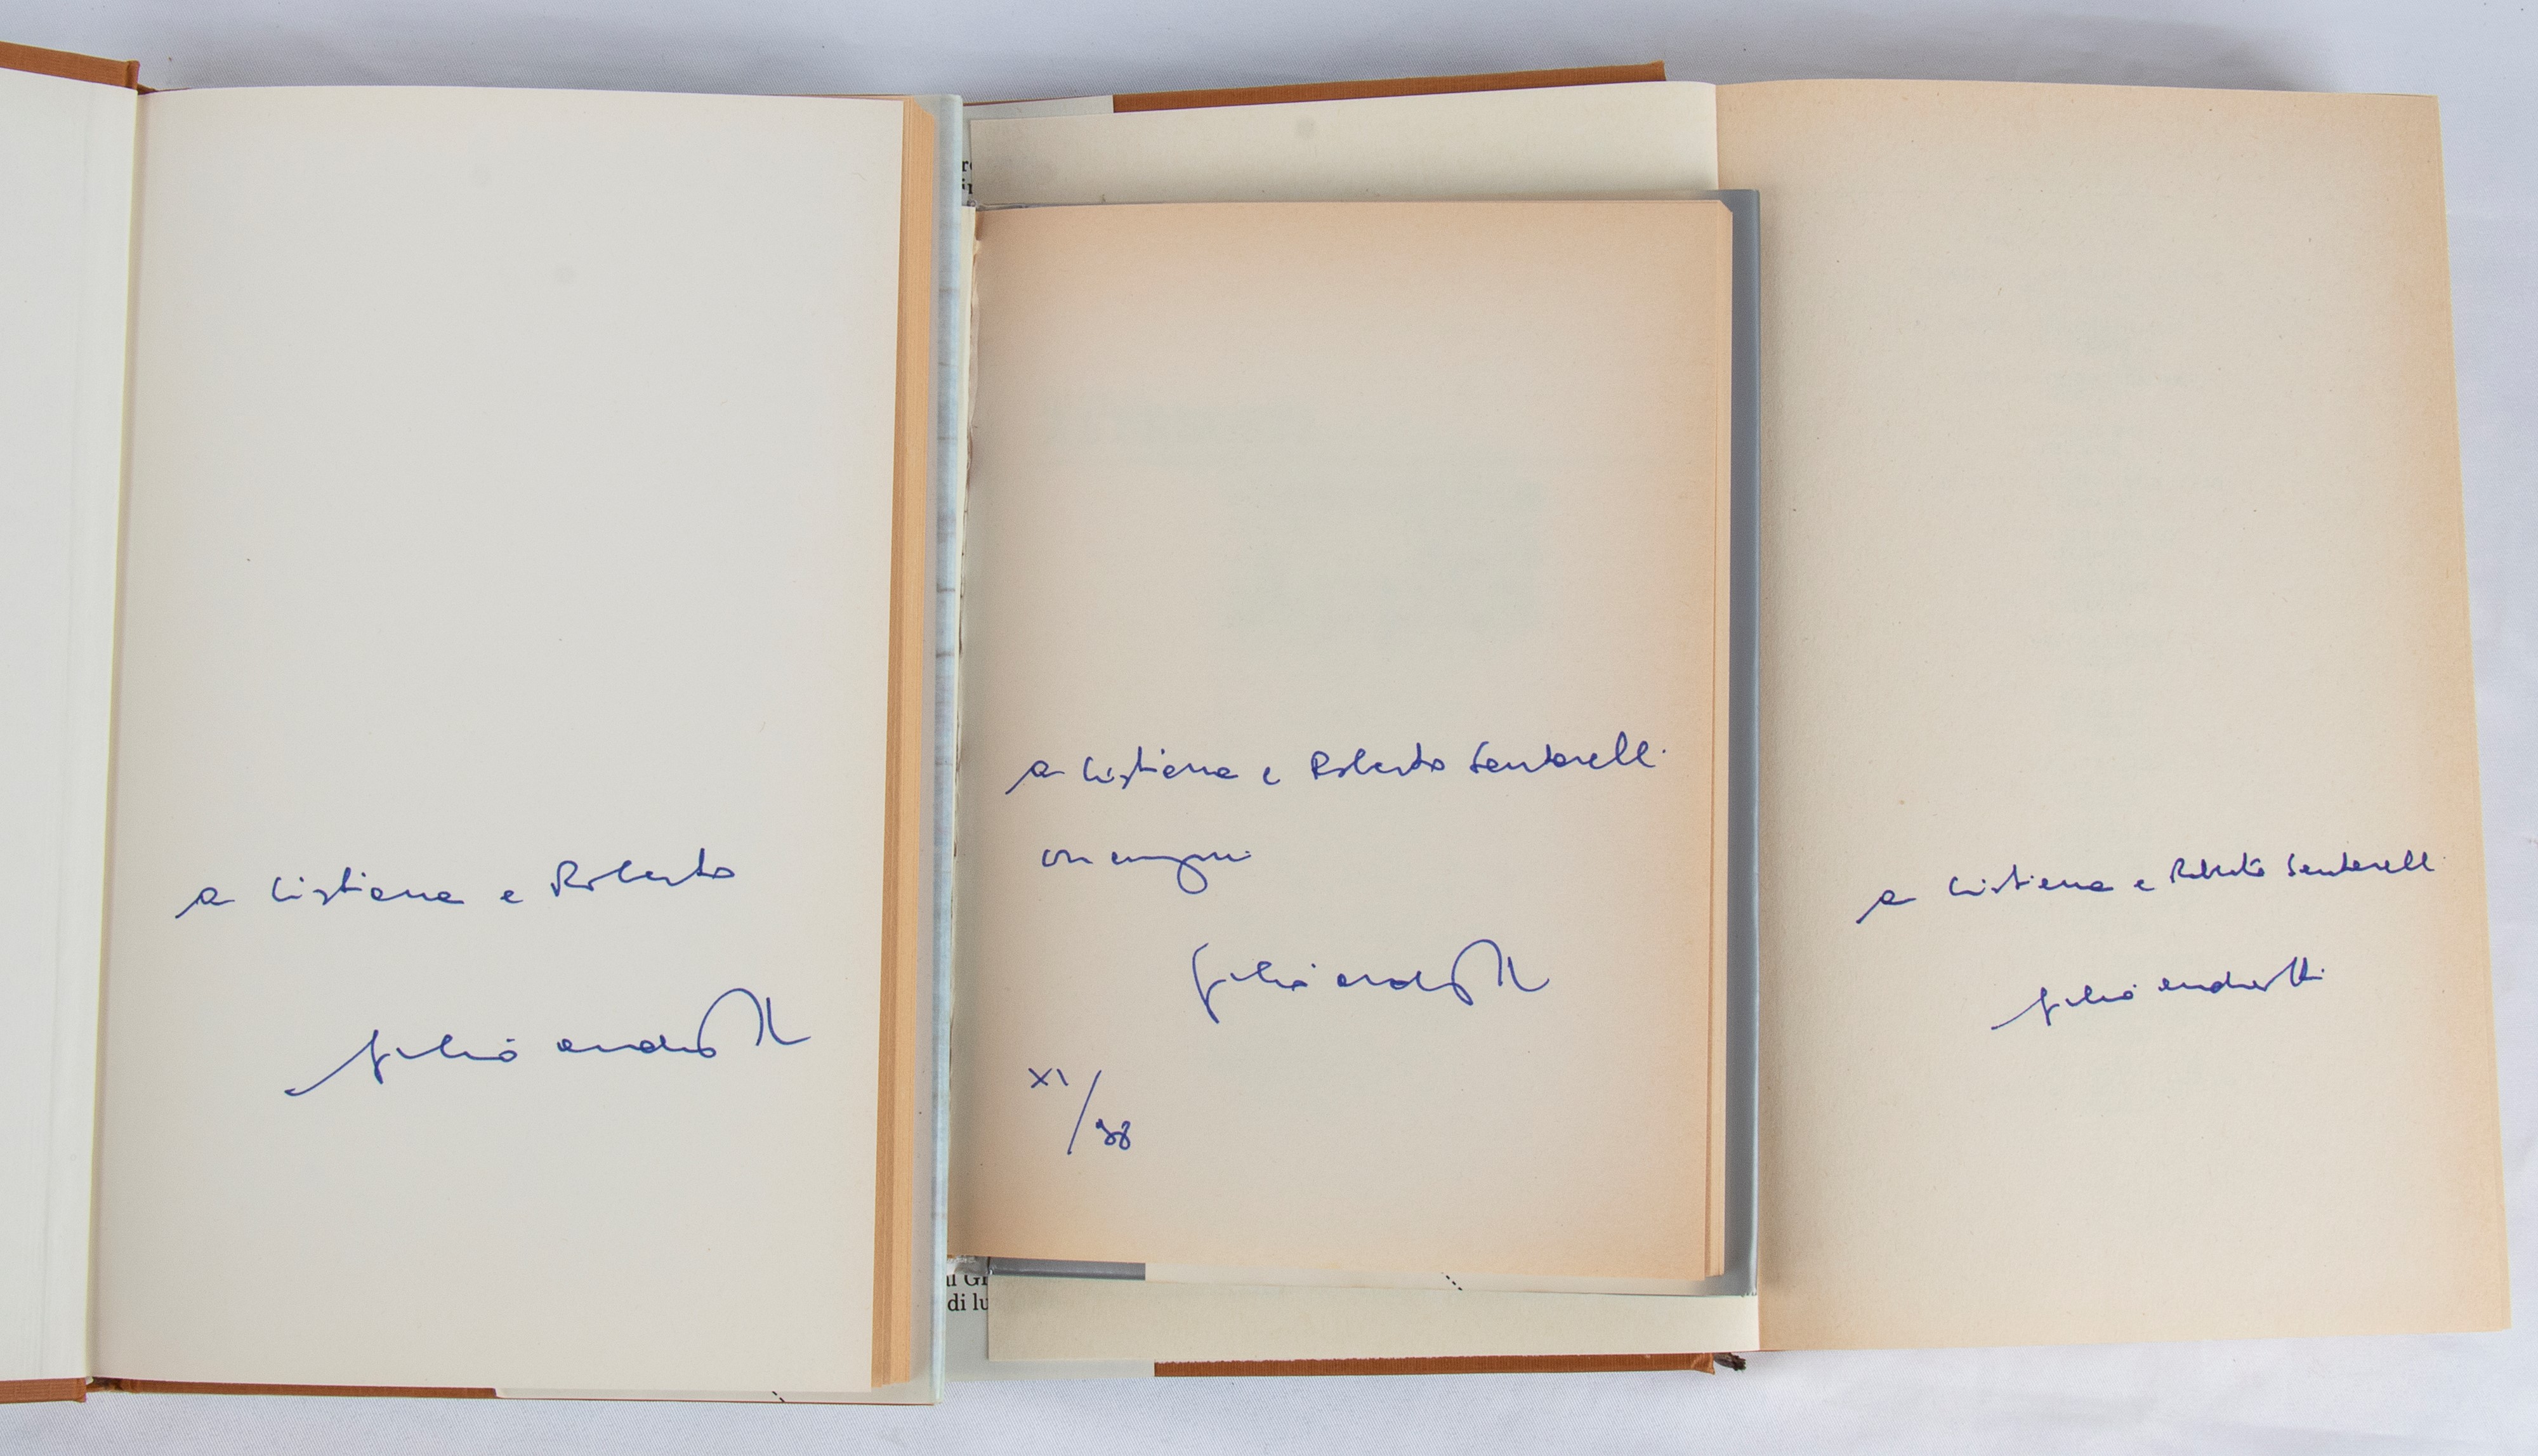 a Cristiana e Roberto
Giulio Andreotti
a Cristiana e Roberto Santarelli
con auguri
Giulio Andreotti
XI/88
a Cristiana e Roberto Santarelli
Giulio Andreotti
di lu